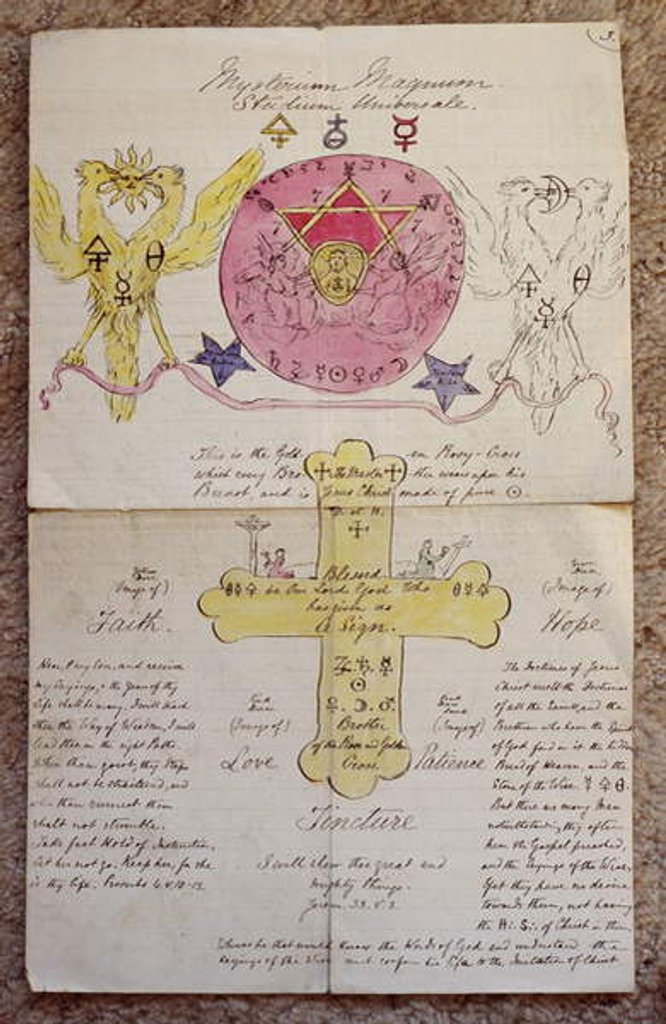 3.
Mysterium Magnum.
Studium Universale.
7 7
7 7
This is the Gold en Rosy-Cross
which every Bro ther wears upon his
Breast, and is made of pure ☉.
The Master
Jesus Christ
Blessed
be Our Lord God Who
has given us
A Sign.
Brother
of the Rose and Golden
Cross
(Image of)
Faith.
(Image of)
Hope
(Image of)
Love
(Image of)
Patience
Hear, O my Son, and receive
my Sayings, & the Years of thy
Life shall be many, I will lead
thee the Way of Wisdom, I will
lead thee in the right Paths.
When thou goest, thy Steps
shall not be straitened, and
when thou runnest thou
shalt not stumble.
Take fast Hold of Instruction,
let her not go. Keep her, for she
is thy life. Proverbs 4. v. 10-13.
Tincture
I will shew thee great and
mighty things.
Jerem. 33. v. 3.
The Doctrines of Jesus
Christ excells the Doctrines
of all the Saints, and the
Brethren who have the Spirit
of God find in it the hidden
Bread of Heaven, and the
Stone of the Wise
But there are many Men
notwithstanding they often
hear the Gospel preached,
and the Sayings of the Wise,
Yet they have no desire
towards them, not having
the H: S: of Christ in them
that would know the Words of God and understand the
sayings of the Wise must conform his Life to the Imitation of Christ